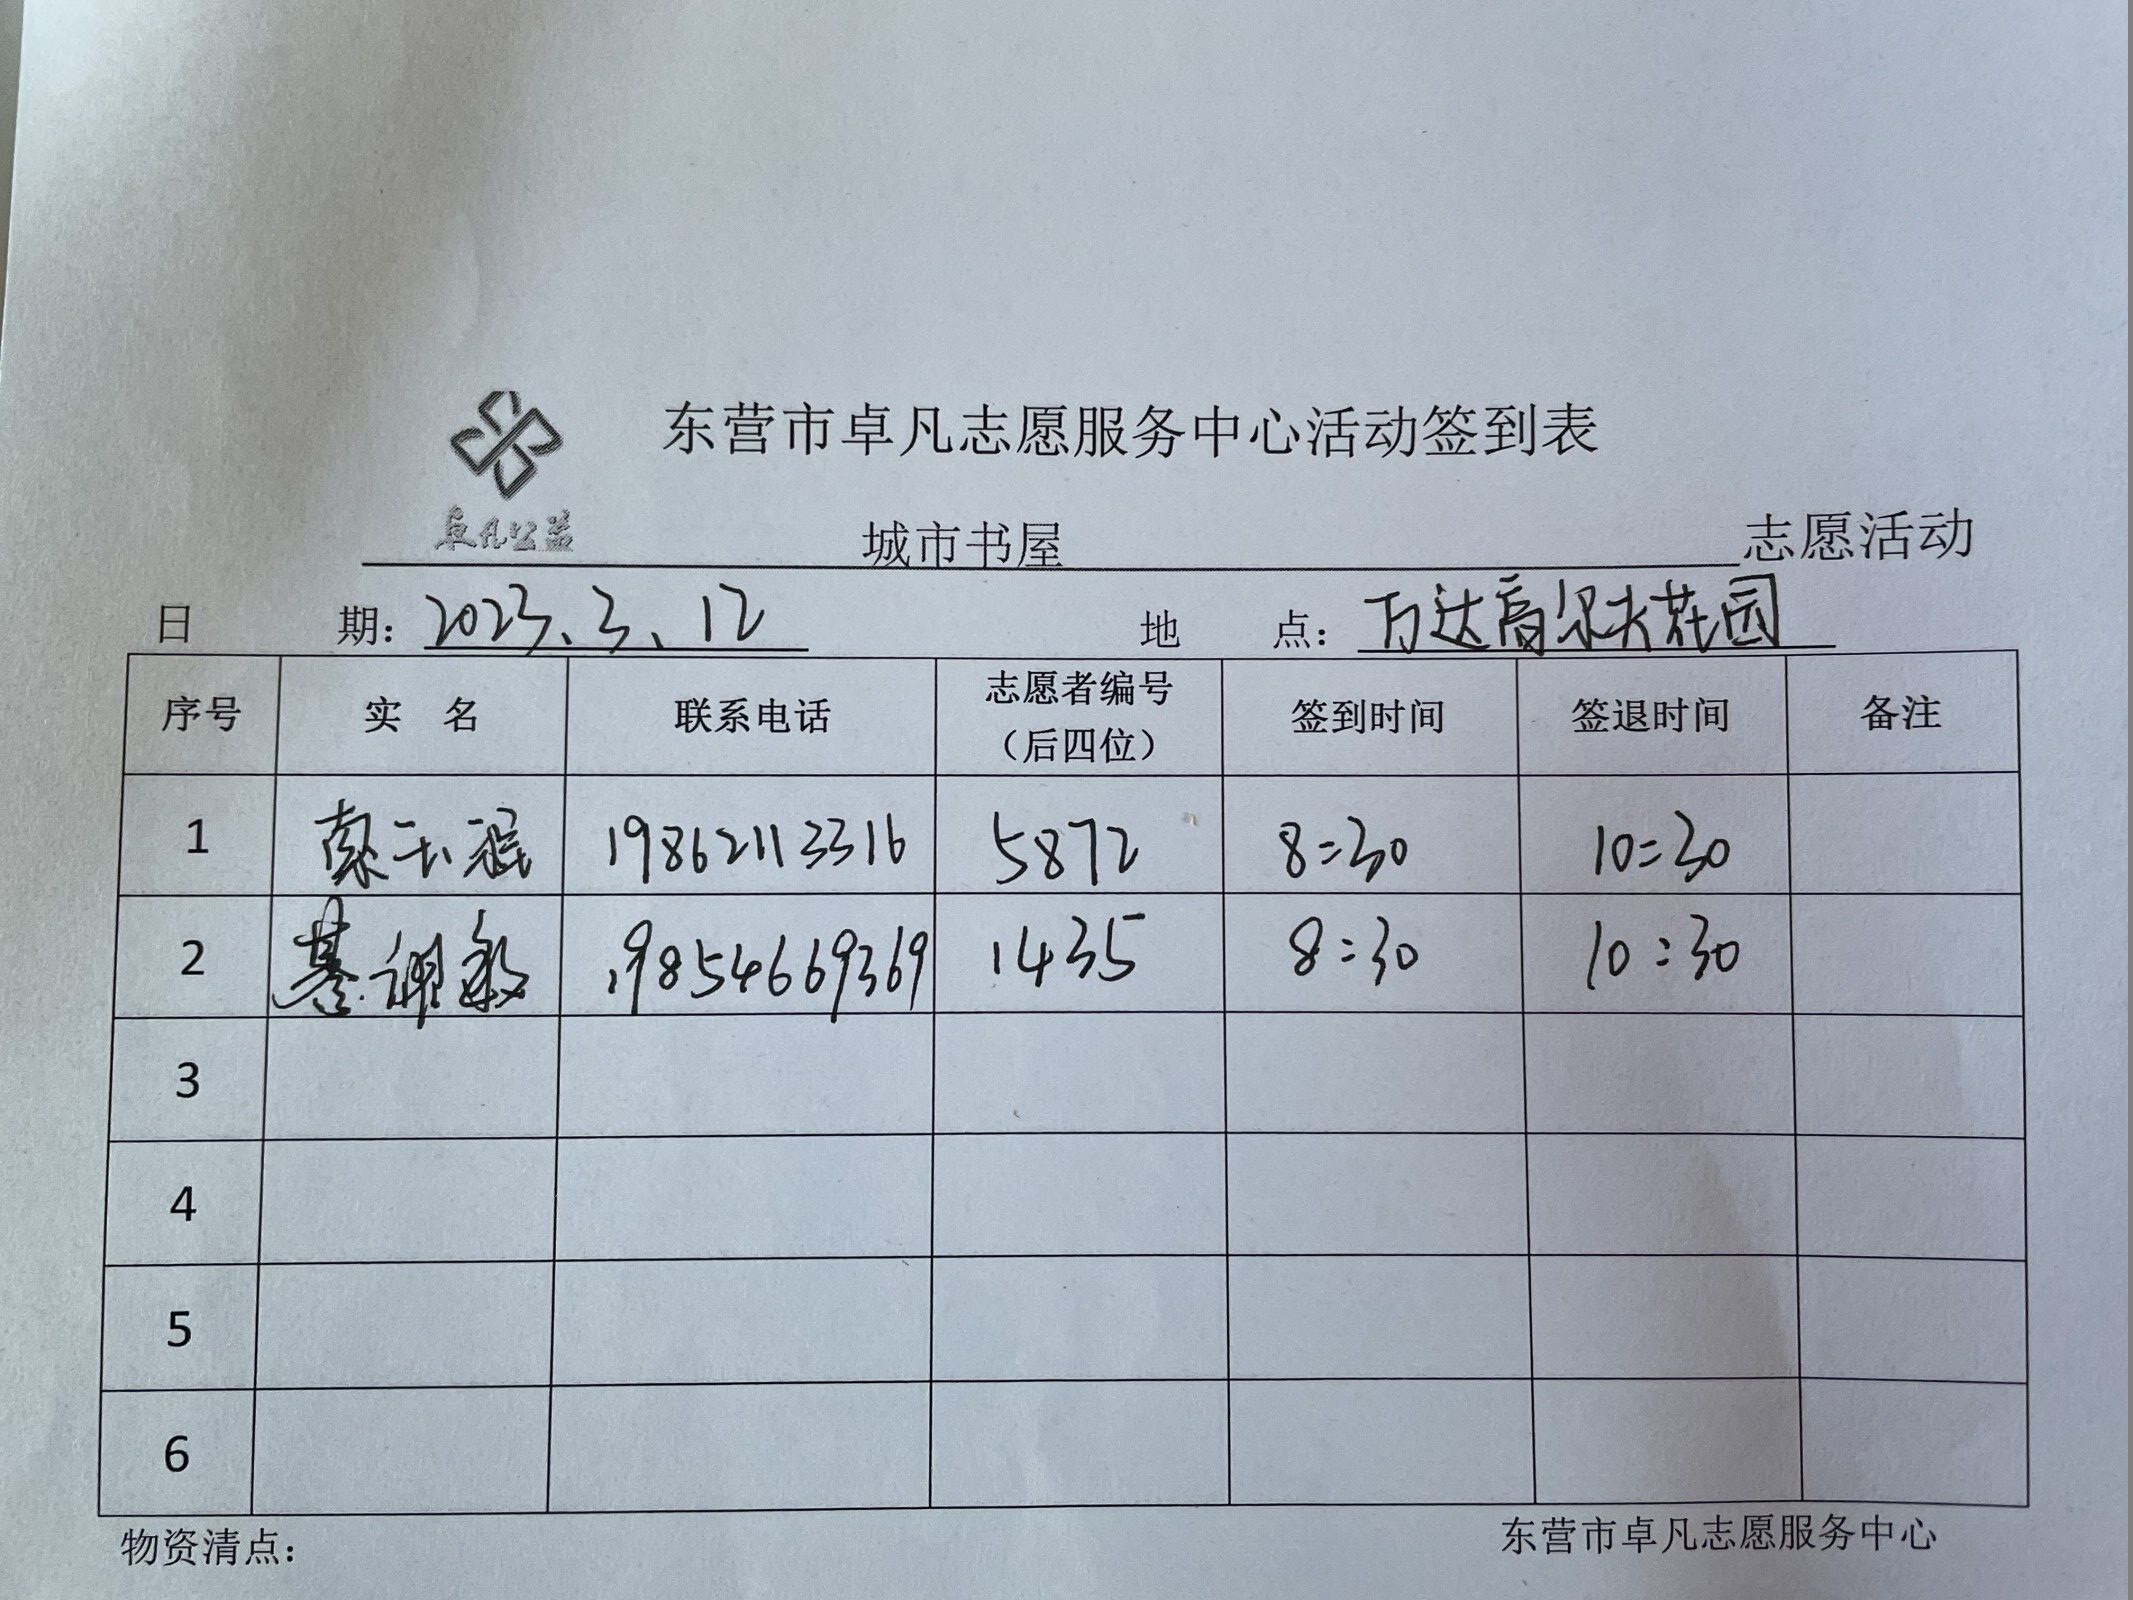 东营市卓凡志愿服务中心活动签到表
卓凡公益
城市书屋 志愿活动
日 期：2023、3、12 地 点：万达高尔夫花园
序号 实 名 联系电话 志愿者编号（后四位） 签到时间 签退时间 备注
1 19862113316 5872 8:30 10:30
2 19854669369 1435 8:30 10:30
3
4
5
6
物资清点： 东营市卓凡志愿服务中心